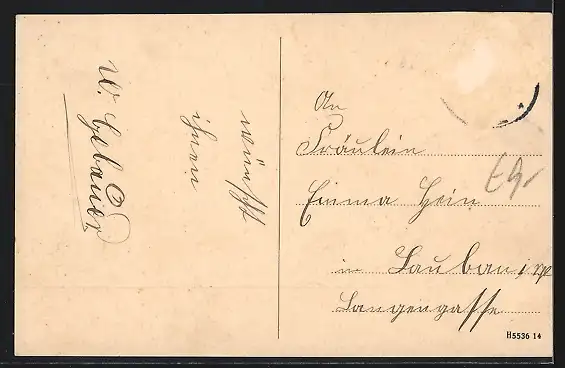 wünscht
ihnen
W. Gebauer
An
Fräulein
Emma Hein
in Lauban,
Langengasse
H5536 14